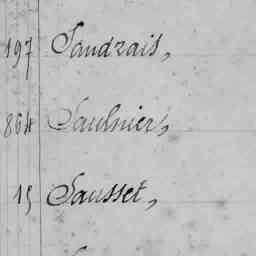 197 Saudrais,
864 Saulnier,
15 Sausset,